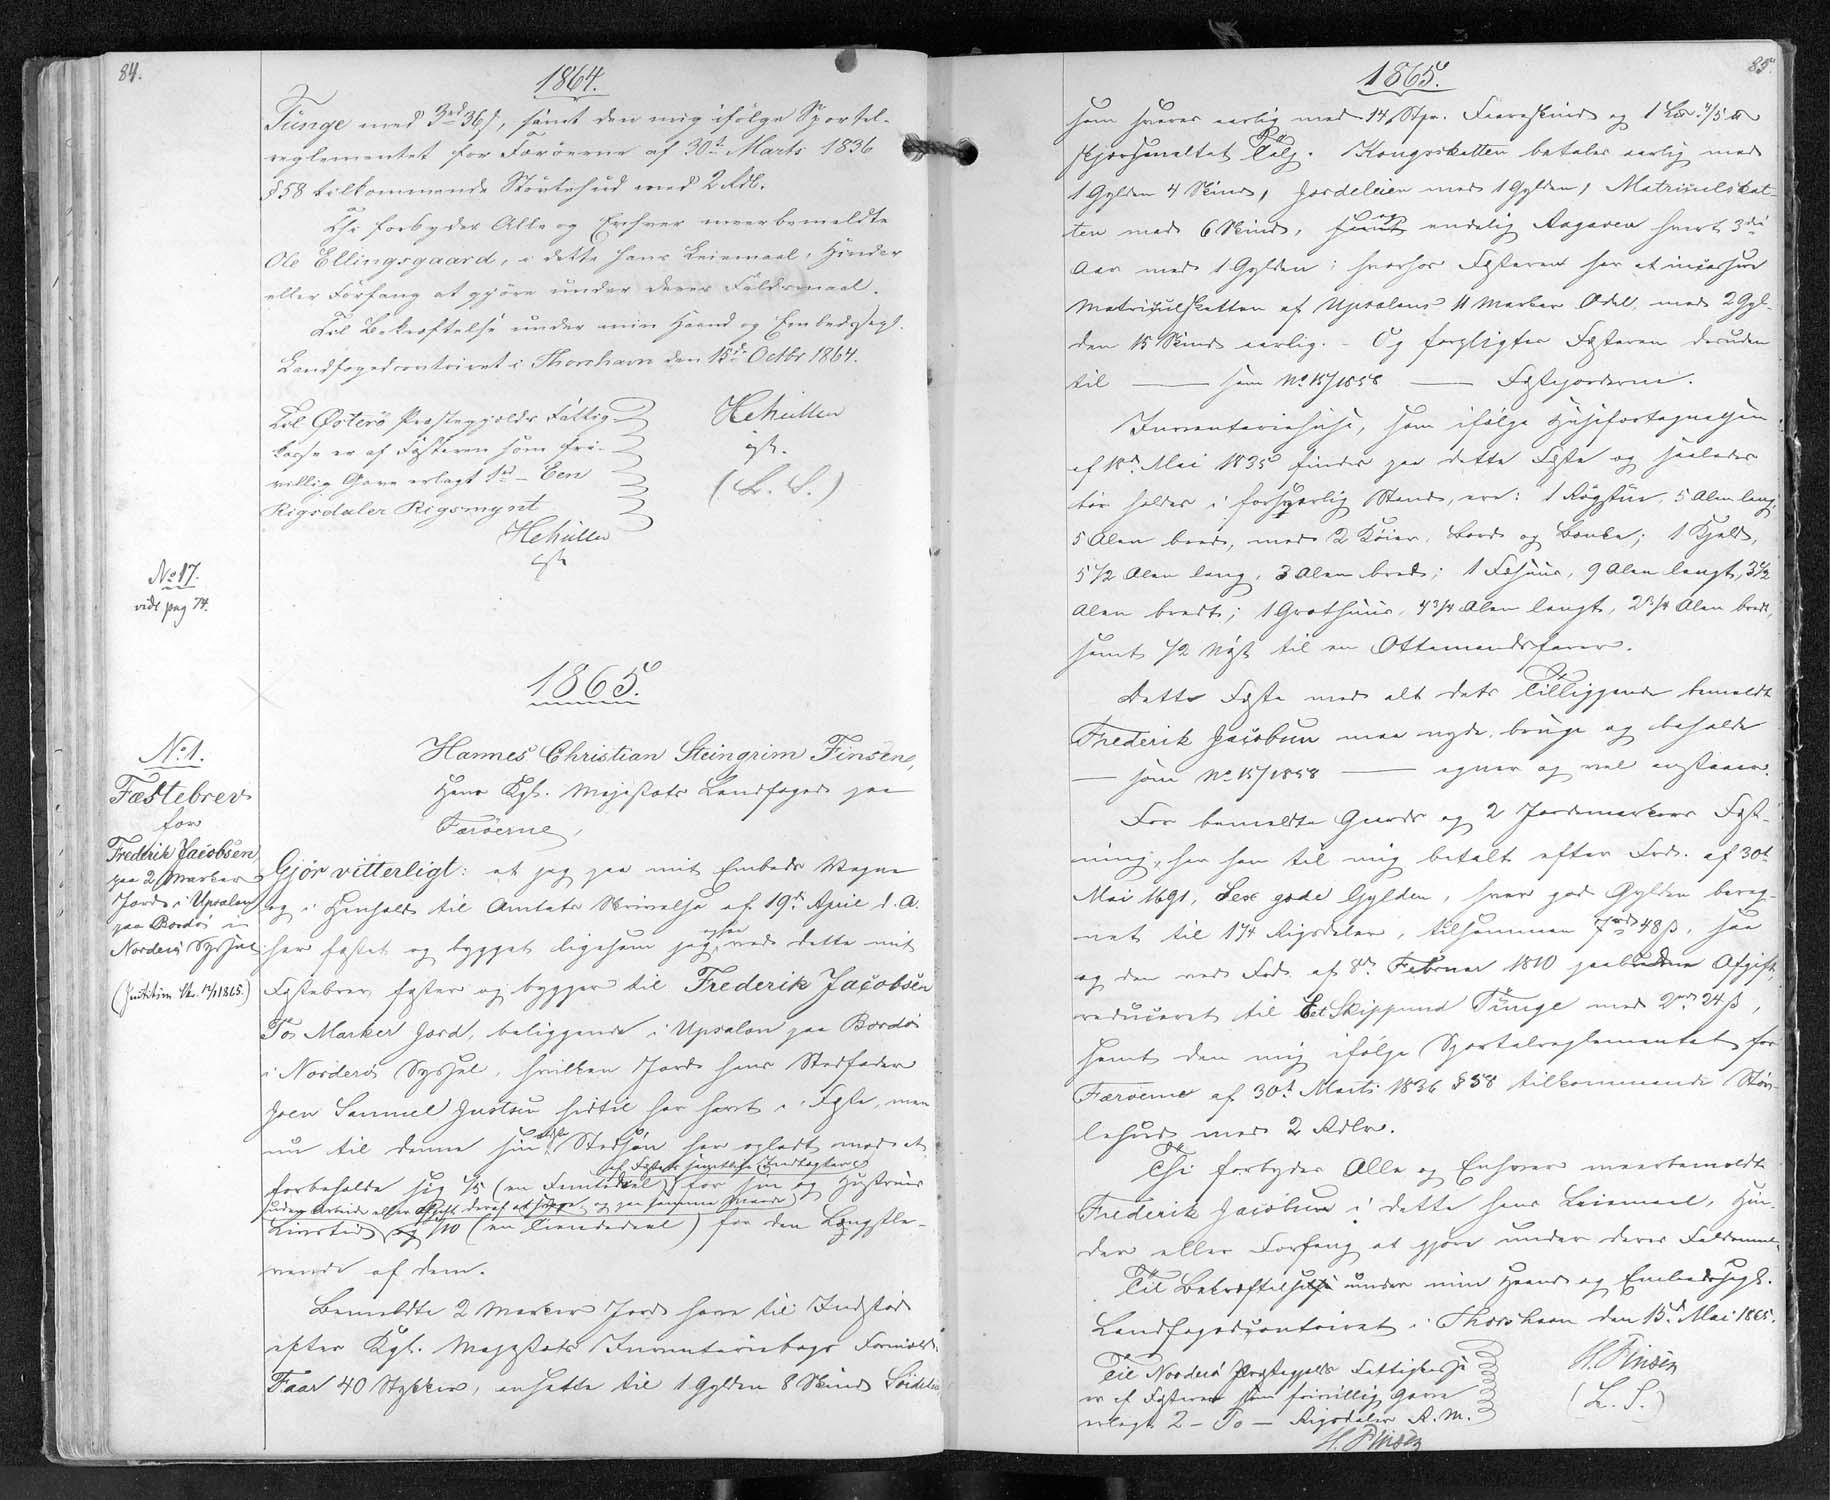 84.
1864.
Tünge med 3rd 36 s, samt den mig ifølge Sportel-
reglementet for Færöerne af 30t Marts 1836
§ 58 tilkommende Störlehud med 2 Rdl.
Thi forbydes Alle og Enhver meerbemeldte
Ole Ellingsgaard, i dette hans Leiemaal, Hinder
eller Forfang at gjöre under deres Faldsmaal.
Til Bekræftelse under min Haand og Embedssegl.
Landfogedcontoiret i Thorshavn den 15de Octbr 1864.
Til Østerö Præstegjelds Fattig-
kasse er af Fæsteren som fri-
villig Gave erlagt 1rd - Een
Rigsdaler Rigsmynt
HCMüller
cst.
HCMüller
cst.
(L. S.)
No 17.
vide pag 74.
1865.
No 1.
Fæstebrev
for
Frederik Jacobsen,
paa 2 Marker
Jord i Upsalen
paa Bordö i
Norderö Syssel
Hannes Christian Steingrim Finsen,
Hans Kgl. Majestæts Landfoged paa
Færöerne,
Gjör vitterligt: at jeg paa mit Embeds Vegne
og i Henhold til Amtets Skrivelse af 19de April d. A.
har fæstet og bygget ligesom jeg ogsaa ved dette mit
Fæstebrev fæster og bygger til Frederik Jacobsen
To Marker Jord, beliggende i Upsalen paa Bordö
i Norderö Syssel, hvilken Jord hans Stedfader
Joen Samuel Justsen hidtil har havt i Fæste, men
nu til denne sin Stedsön har opladt mod at
af Fæstets samtlige Indtægter
forbeholde sig 1/5 (en Femtedeel) for sin og Hustrues
uden Arbeide eller Afgift deraf at svare og paa samme Maade
Livstid og 1/10 (en Tiendedeel) for den Længstle-
vende af dem.
Bemeldte 2 Marker Jord have til Indstöd
efter Kgl. Majestæts Inventariebogs Formeld:
Faar 40 Stykker, ansatte til 1 Gylden 8 Skind
85.
1865.
som svares aarlig med 14 Stkr. Faareskind og 1 Lb 4/5 lb
skjörsmeltet Talg. Kongeskatten betales aarlig med
1 Gylden 4 Skind, Jordeleien med 1 Gylden, Matriculskat-
ten med 6 Skind, og endelig Aagaven hvert 3die
Aar med 1 Gylden; hvorhos Fæsteren har at
Matriculskatten af Upsalens 11 Marker Odel med 2 Gyl-
den 15 Skind aarlig. - Og forpligtes Fæsteren desuden
til — som No 15/1858 — Fæstejorderne.
Inventariehuse, som ifölge Huusfortegnelsen
af 18de Mai 1835 findes paa dette Fæste og saaledes
bör holdes i forsvarlig Stand, ere: 1 Rögstue, 5 Alen lang,
5 Alen bred, med 2 Köier, Bord og Bænke; 1 Hjald,
5 1/2 Alen lang, 3 Alen bred; 1 Fæhuus, 9 Alen langt, 3 1/2
Alen bredt; 1 Grothuus, 4 3/4 Alen langt, 2 3/4 Alen bredt,
samt 1/2 Nöst til en Ottemandsfarer.
Dette Fæste med alt dets Tilliggende bemeldte
Frederik Jacobsen maa nyde, bruge og beholde
— som No 15/1858 — egner og vel anstaaer.
For bemeldte Gaards og 2 Jordemarkers Fæst-
ning, har han til mig betalt efter Frd. af 30t
Mai 1691, Sex gode Gylden, hver god Gylden bereg-
net til 1 1/4 Rigsdaler, tilsammen 7rd 48 ß, saa
og den ved Frd. af 8de Februar 1810 paabudne Afgift,
reduceret til Eet Skippund Tünge med 2rd 24 ß,
samt den mig ifölge Sportelreglementet for
Færöerne af 30t Marts 1836 § 58 tilkommende Stör-
lehud med 2 Rdlr.
Thi forbydes Alle og Enhver meerbemeldte
Frederik Jacobsen i dette hans Leiemaal, Hin-
der eller Forfang at gjöre under deres Faldsmaal.
Til Bekræftelse under min Haand og Embedssegl.
Landfogedcontoiret i Thorshavn den 15de Mai 1865.
Til Norderö Præstegjelds Fattigkasse
er af Fæsteren som frivillig Gave
erlagt 2 - To - Rigsdaler R. M.
H. Finsen
H. Finsen
(L. S.)